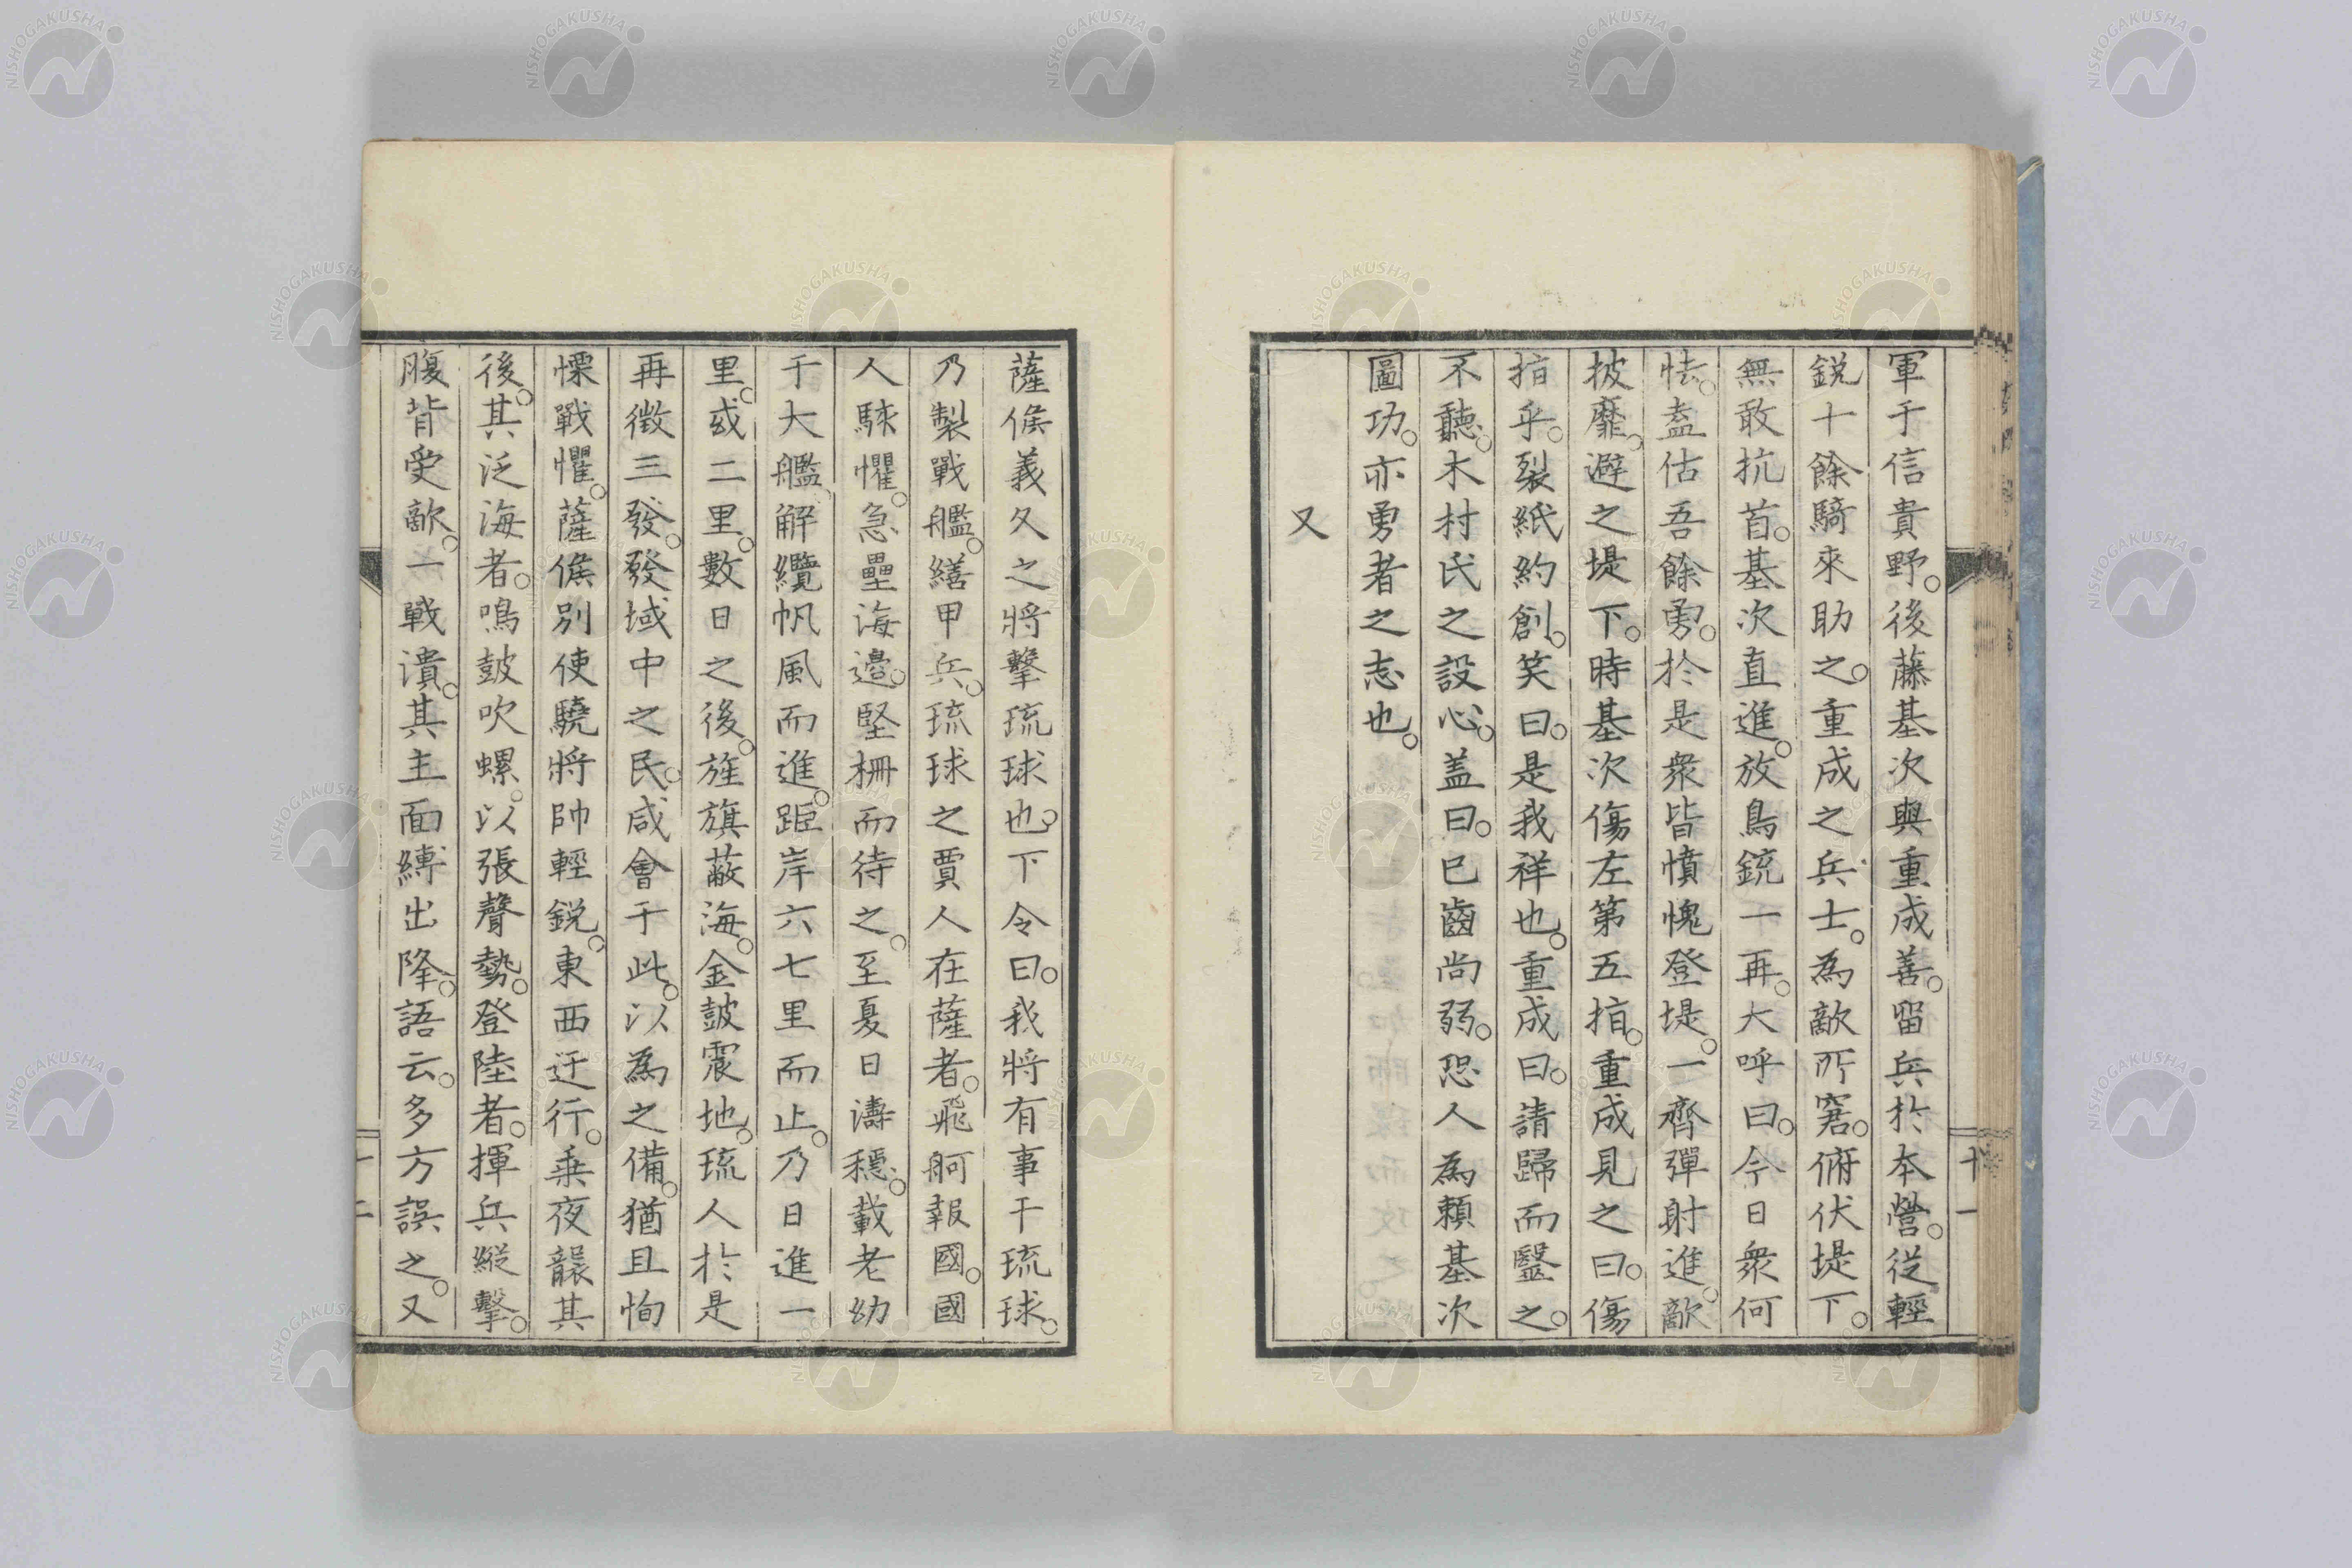 軍于信貴野。後藤基次與重成善。留兵於本營。從輕
鋭十餘騎來助之。重成之兵士。為敵所窘。俯伏堤下。
無敢抗首。基次直進。放鳥銃一再。大呼曰。今日衆何
怯。盍估吾餘勇。於是衆皆憤愧登堤。一齊彈射進。敵
披靡。避之堤下。時基次傷左第五指。重成見之曰。傷
指乎。裂紙約創。笑曰。是我祥也。重成曰。請歸而醫之。
不聽。木村氏之設心。盖曰。已齒尚弱。恐人為賴基次
圖功。亦勇者之志也。
又
十一
薩侯義久之將擊琉球也。下令曰。我將有事于琉球。
乃製戰艦。繕甲兵。琉球之賈人在薩者。飛舸報國。國
人駭懼。急壘海邊。堅柵而待之。至夏日濤穩。載老幼
于大艦。解纜帆風而進。距岸六七里而止。乃日進一
里。或二里。數日之後。旌旗蔽海。金鼓震地。琉人於是
再徵三發。發域中之民。咸會于此。以為之備。猶且恟
慄戰懼。薩侯別使驍將帥輕鋭。東西迂行。乘夜襲其
後。其泛海者。鳴鼓吹螺。以張聲勢。登陸者。揮兵縱擊。
腹背受敵。一戰潰。其主面縛出降。語云。多方誤之。又
十二
NISHOGAKUSHA